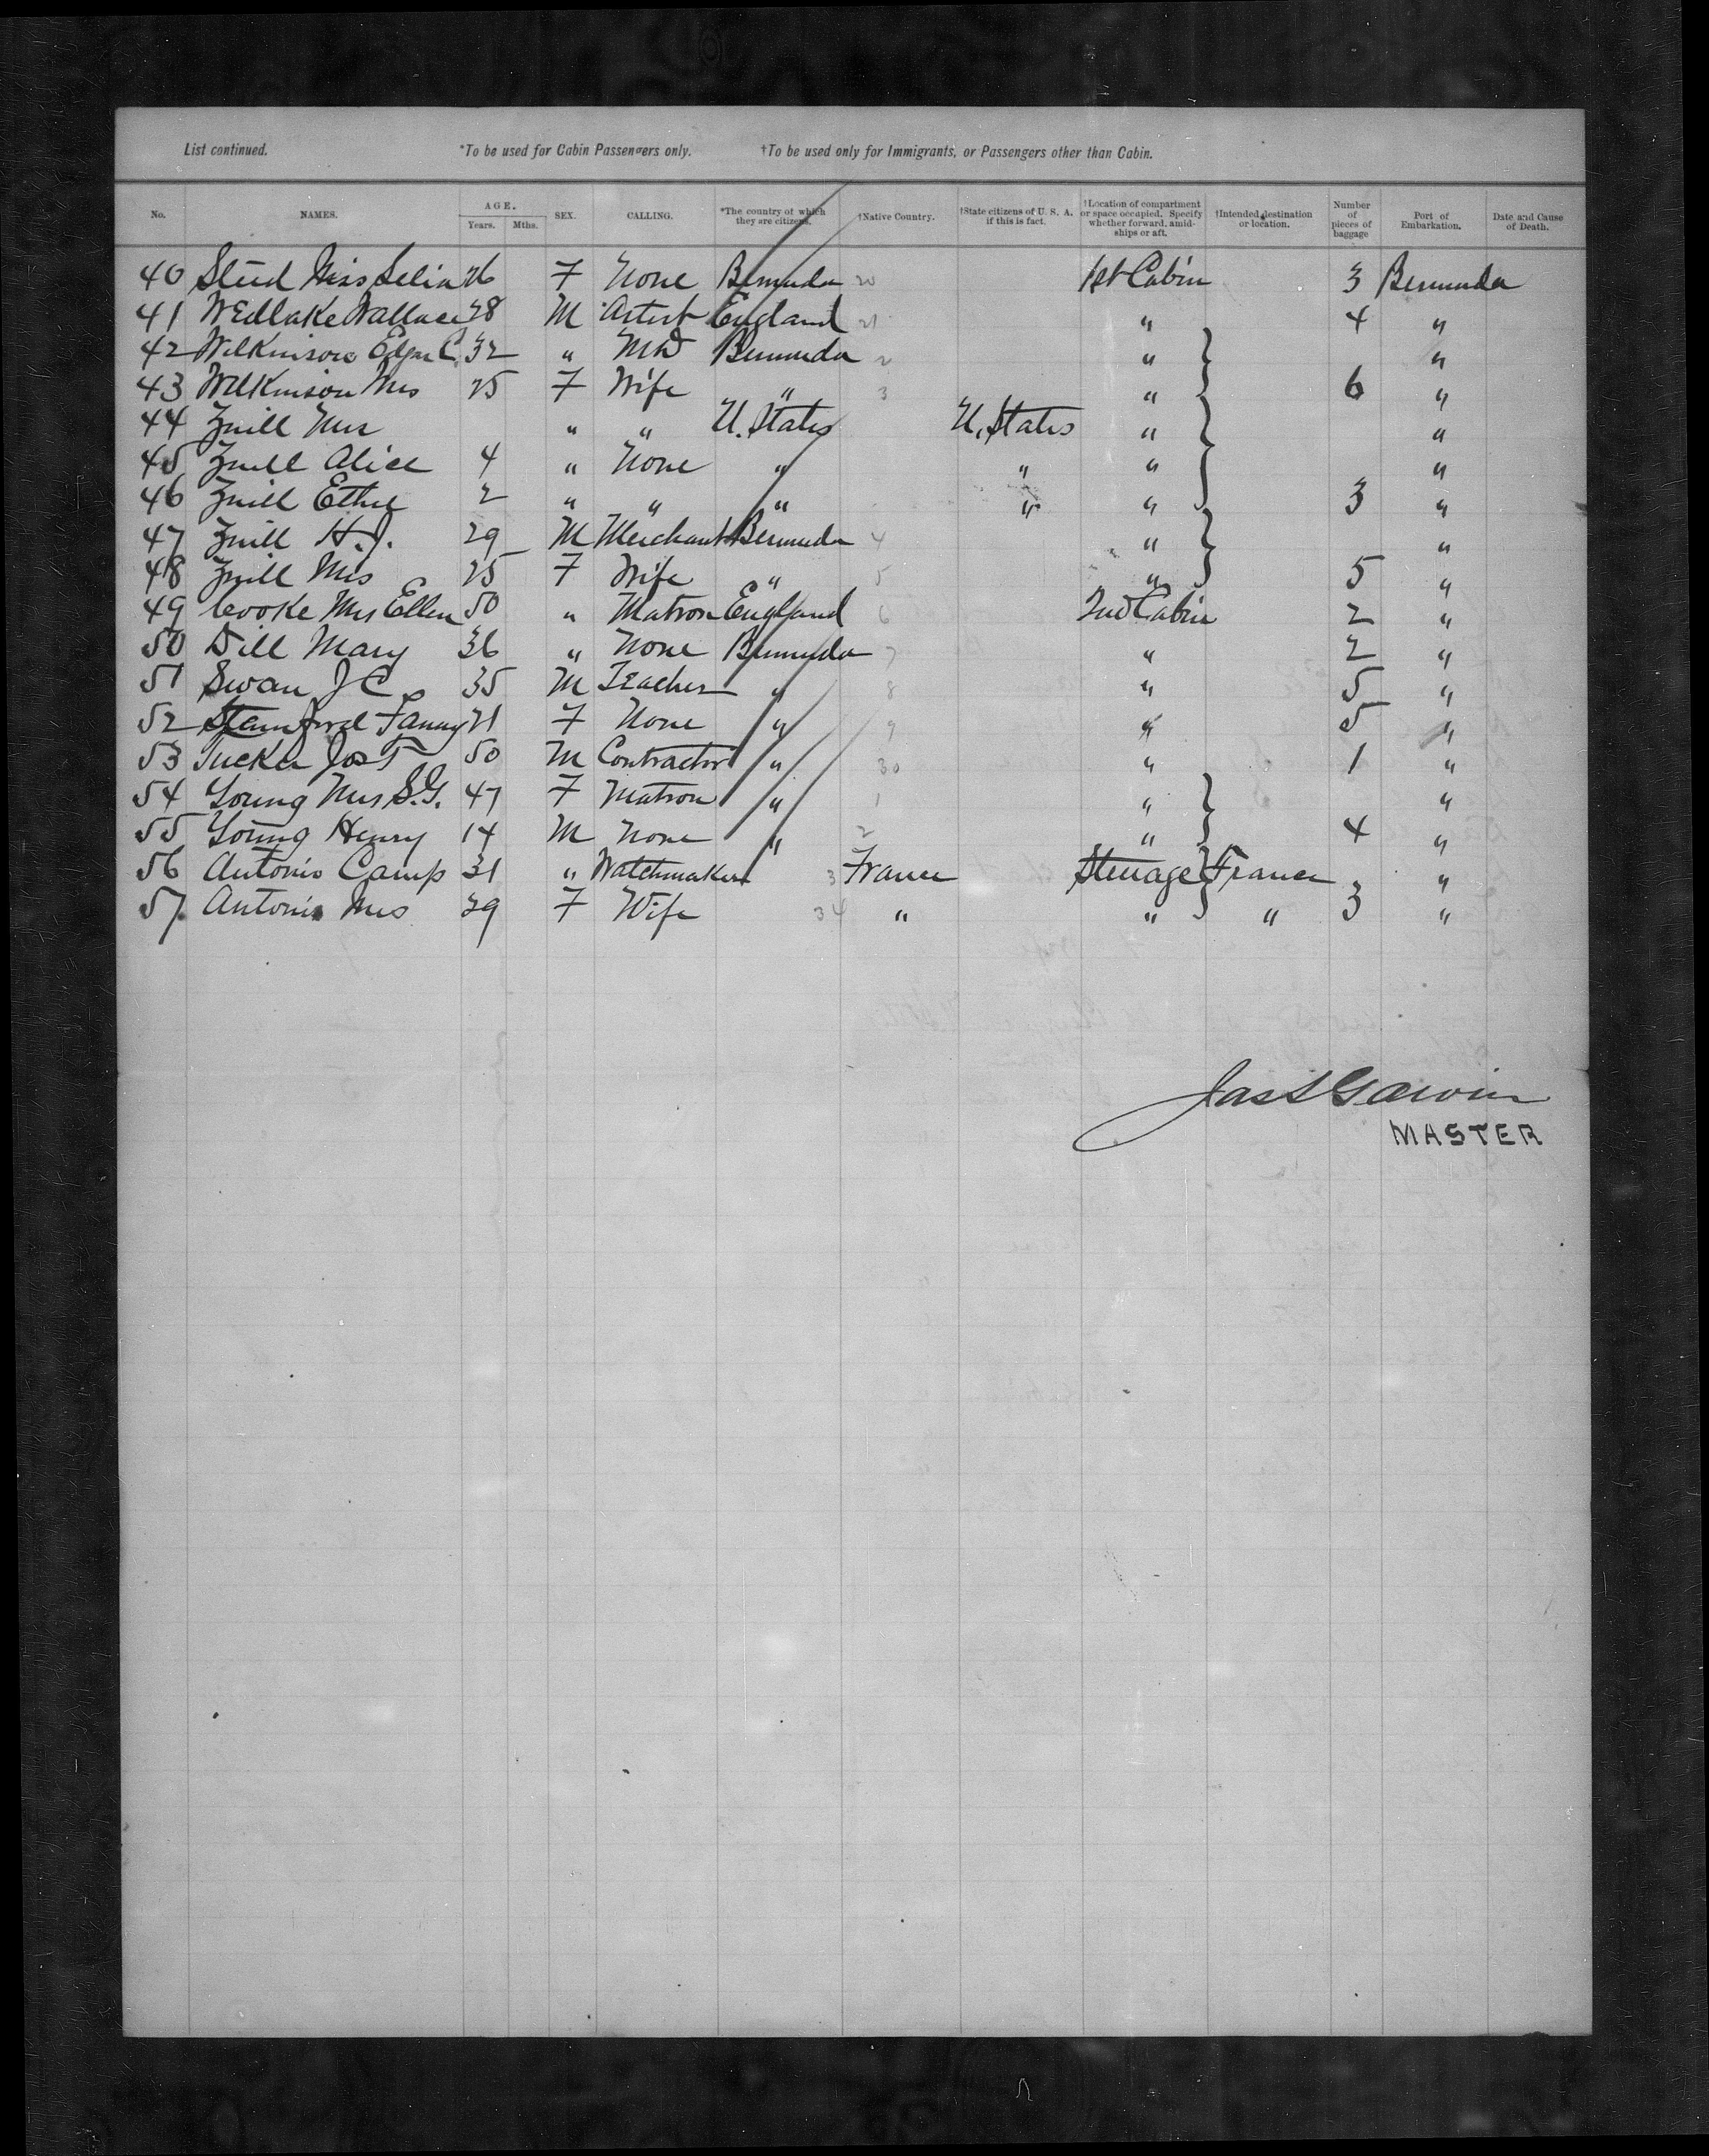 List continued. *To be used for Cabin Passengers only. †To be used only for Immigrants, or Passengers other than Cabin.
No. NAMES. AGE. Years. Mths. SEX. CALLING. *The country of which they are citizens. †Native Country. †State citizens of U. S. A. if this is fact. †Location of compartment or space occupied. Specify whether forward, amidships or aft. †Intended destination or location. Number of pieces of baggage Port of Embarkation. Date and Cause of Death.
40 Miss Selia 26 F None Bermuda 20 1st Cabin 3 Bermuda
41 Wedlake Wallace 28 M Artist England 21 " 4 "
42 Wilkinson Edgar C. 32 " MD Bermuda 2 " "
43 Wilkinson Mrs 25 F Wife " 3 " 6 "
44 Zuill Mrs " " U. States U. States " "
45 Zuill Alice 4 " None " " " "
46 Zuill Ethel 2 " " " " " 3 "
47 Zuill H.J. 29 M Merchant Bermuda 4 " "
48 Zuill Mrs 25 F Wife " 5 " 5 "
49 Cooke Mrs Ellen 50 " Matron England 6 2nd Cabin 2 "
50 Dill Mary 36 " None Bermuda 7 " 2 "
51 Swan J C 35 M Teacher " 8 " 5 "
52 Stamford Fanny 21 F None " 9 " 5 "
53 Tucker Jos T 50 M Contractor " 30 " 1 "
54 Young Mrs S.G. 47 F Matron " 1 " "
55 Young Henry 14 M None " 2 " 4 "
56 Antonio Camp 31 " Watchmaker 3 France Steerage France "
57 Antonio Mrs 29 F Wife 34 " " " 3 "
MASTER